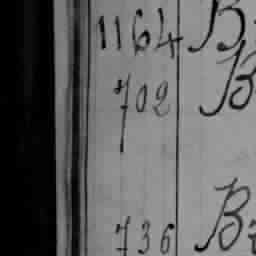 1164 B
702 B
736 B